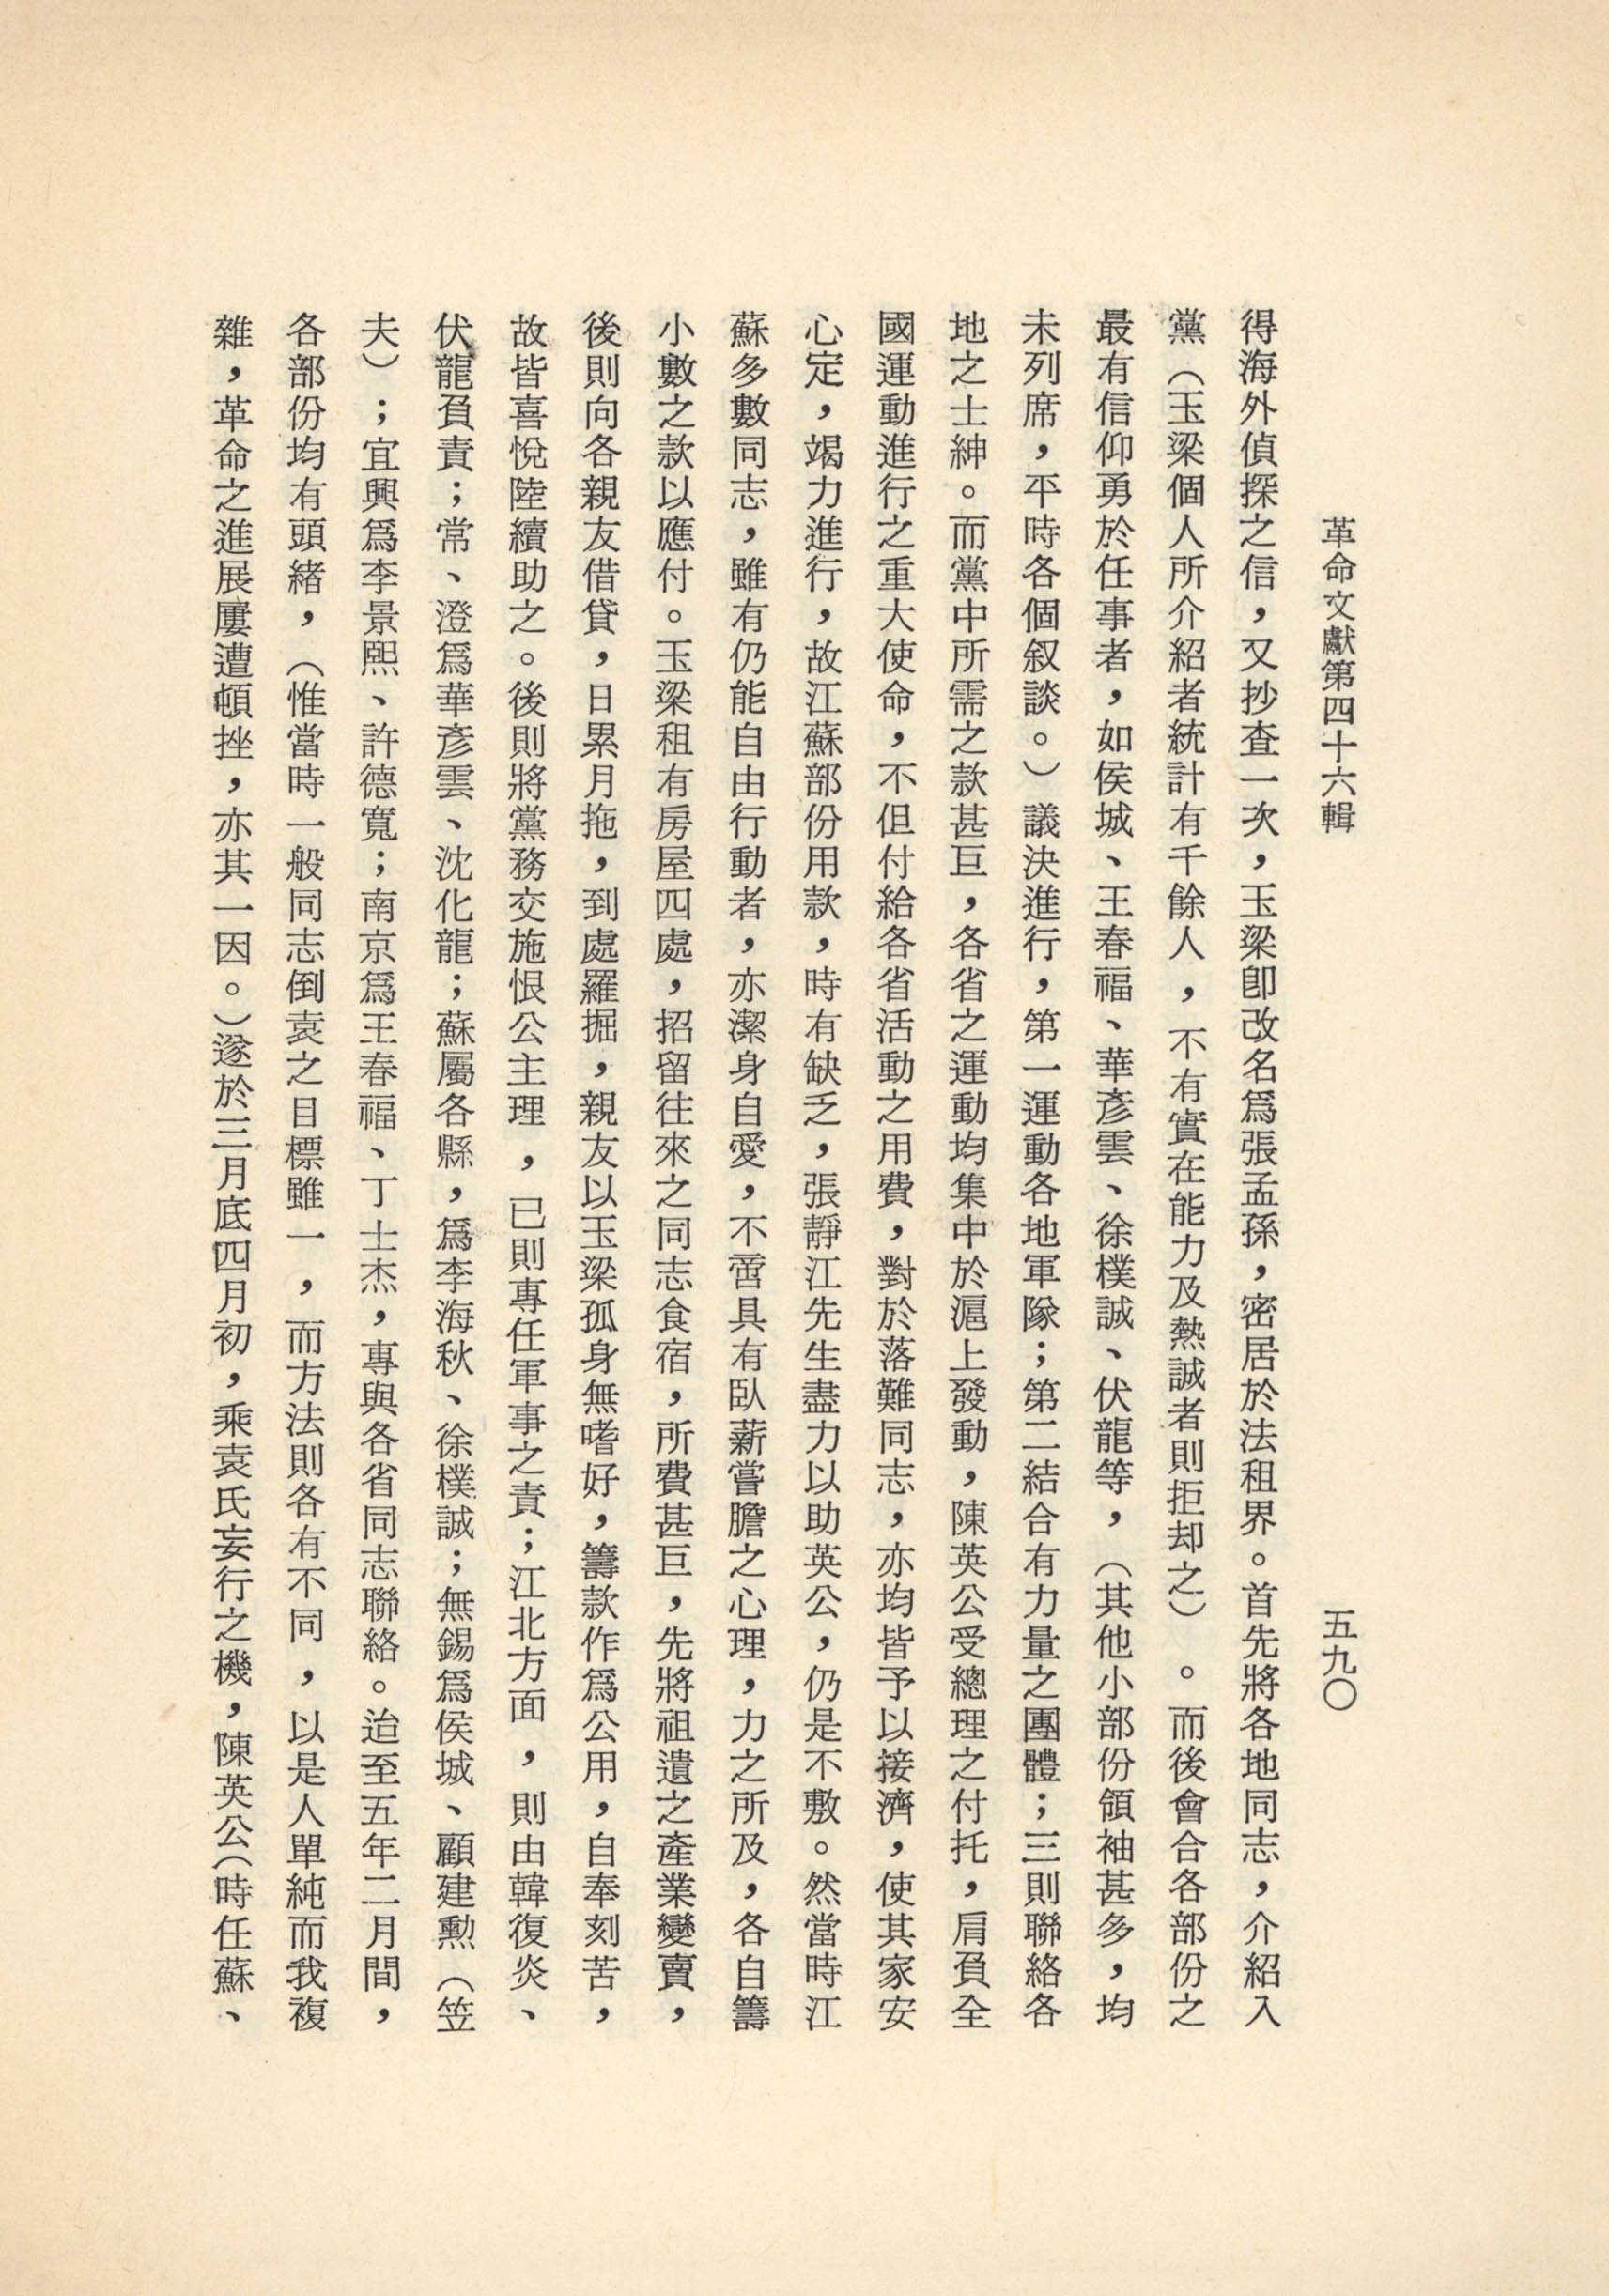 革命文獻第四十六輯
五九〇
得海外偵探之信，又抄查一次，玉梁卽改名爲張孟孫，密居於法租界。首先將各地同志，介紹入
黨（玉梁個人所介紹者統計有千餘人，不有實在能力及熱誠者則拒却之）。而後會合各部份之
最有信仰勇於任事者，如侯城、王春福、華彥雲、徐樸誠、伏龍等，（其他小部份領袖甚多，均
未列席，平時各個叙談。）議決進行，第一運動各地軍隊；第二結合有力量之團體；三則聯絡各
地之士紳。而黨中所需之款甚巨，各省之運動均集中於滬上發動，陳英公受總理之付托，肩負全
國運動進行之重大使命，不但付給各省活動之用費，對於落難同志，亦均皆予以接濟，使其家安
心定，竭力進行，故江蘇部份用款，時有缺乏，張靜江先生盡力以助英公，仍是不敷。然當時江
蘇多數同志，雖有仍能自由行動者，亦潔身自愛，不啻具有臥薪嘗膽之心理，力之所及，各自籌
小數之款以應付。玉梁租有房屋四處，招留往來之同志食宿，所費甚巨，先將祖遺之產業變賣，
後則向各親友借貸，日累月拖，到處羅掘，親友以玉梁孤身無嗜好，籌款作爲公用，自奉刻苦，
故皆喜悅陸續助之。後則將黨務交施恨公主理，已則專任軍事之責；江北方面，則由韓復炎、
伏龍負責；常、澄爲華彥雲、沈化龍；蘇屬各縣，爲李海秋、徐樸誠；無錫爲侯城、顧建勳（笠
夫）；宜興爲李景熙、許德寬；南京爲王春福、丁士杰，專與各省同志聯絡。迨至五年二月間，
各部份均有頭緒，（惟當時一般同志倒袁之目標雖一，而方法則各有不同，以是人單純而我複
雜，革命之進展屢遭頓挫，亦其一因。）遂於三月底四月初，乘袁氏妄行之機，陳英公（時任蘇、